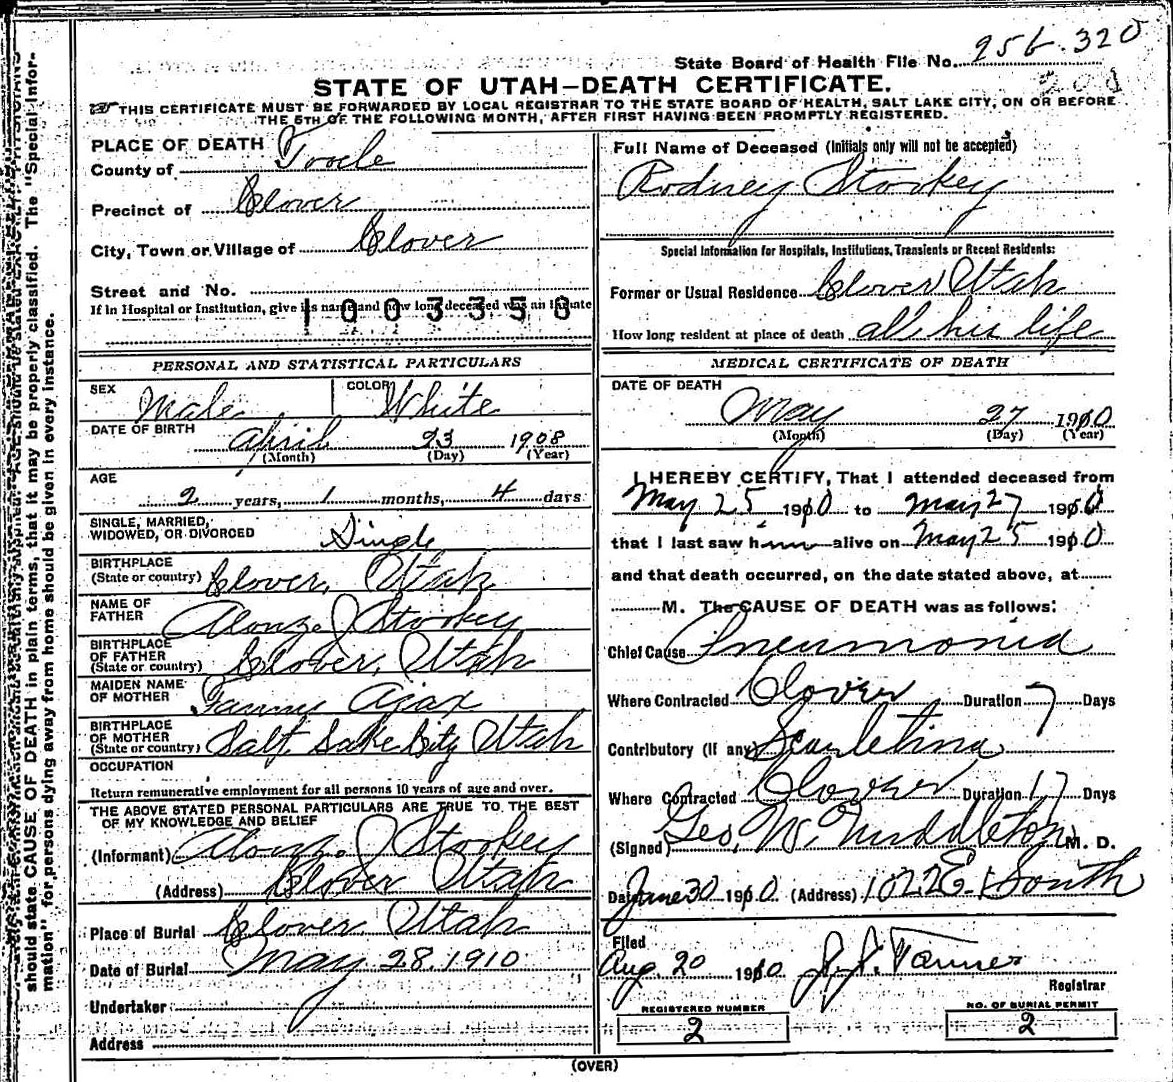 State Board of Health File No. 256-320
STATE OF UTAH—DEATH CERTIFICATE.
THIS CERTIFICATE MUST BE FORWARDED BY LOCAL REGISTRAR TO THE STATE BOARD OF HEALTH, SALT LAKE CITY, ON OR BEFORE
THE 5TH OF THE FOLLOWING MONTH, AFTER FIRST HAVING BEEN PROMPTLY REGISTERED.
PLACE OF DEATH
County of Tooele
Precinct of Clover
City, Town or Village of Clover
Street and No.
If in Hospital or Institution, give its name and how long deceased was an inmate
1003358
PERSONAL AND STATISTICAL PARTICULARS
SEX Male COLOR White
DATE OF BIRTH April 23 1908
(Month) (Day) (Year)
AGE
2 years, 1 months, 4 days
SINGLE, MARRIED,
WIDOWED, OR DIVORCED Single
BIRTHPLACE
(State or country) Clover, Utah
NAME OF
FATHER Alonzo J Stookey
BIRTHPLACE
OF FATHER
(State or country) Clover, Utah
MAIDEN NAME
OF MOTHER Fanny Ajax
BIRTHPLACE
OF MOTHER
(State or country) Salt Lake City Utah
OCCUPATION
Return remunerative employment for all persons 10 years of age and over.
THE ABOVE STATED PERSONAL PARTICULARS ARE TRUE TO THE BEST
OF MY KNOWLEDGE AND BELIEF
(Informant) Alonzo J Stookey
(Address) Clover Utah
Place of Burial Clover Utah
Date of Burial May 28. 1910
Undertaker
Address
Full Name of Deceased (Initials only will not be accepted)
Rodney Stookey
Special Information for Hospitals, Institutions, Transients or Recent Residents:
Former or Usual Residence Clover Utah
How long resident at place of death all his life
MEDICAL CERTIFICATE OF DEATH
DATE OF DEATH
May 27 1910
(Month) (Day) (Year)
I HEREBY CERTIFY, That I attended deceased from
May 25 1910 to May 27 1910
that I last saw him alive on May 25 1910
and that death occurred, on the date stated above, at
M. The CAUSE OF DEATH was as follows:
Chief Cause Pneumonia
Where Contracted Clover Duration 7 Days
Contributory (if any) Scarletina
Where Contracted Clover Duration 17 Days
(Signed) Geo. W. Middleton M. D.
Date June 30 1910 (Address) 1022 E. 1 South
Filed
Aug. 20 1910 J. J. Tanner
Registrar
REGISTERED NUMBER
2
NO. OF BURIAL PERMIT
2
(OVER)
should state CAUSE OF DEATH in plain terms, that it may be properly classified. The "Special Infor-
mation" for persons dying away from home should be given in every instance.